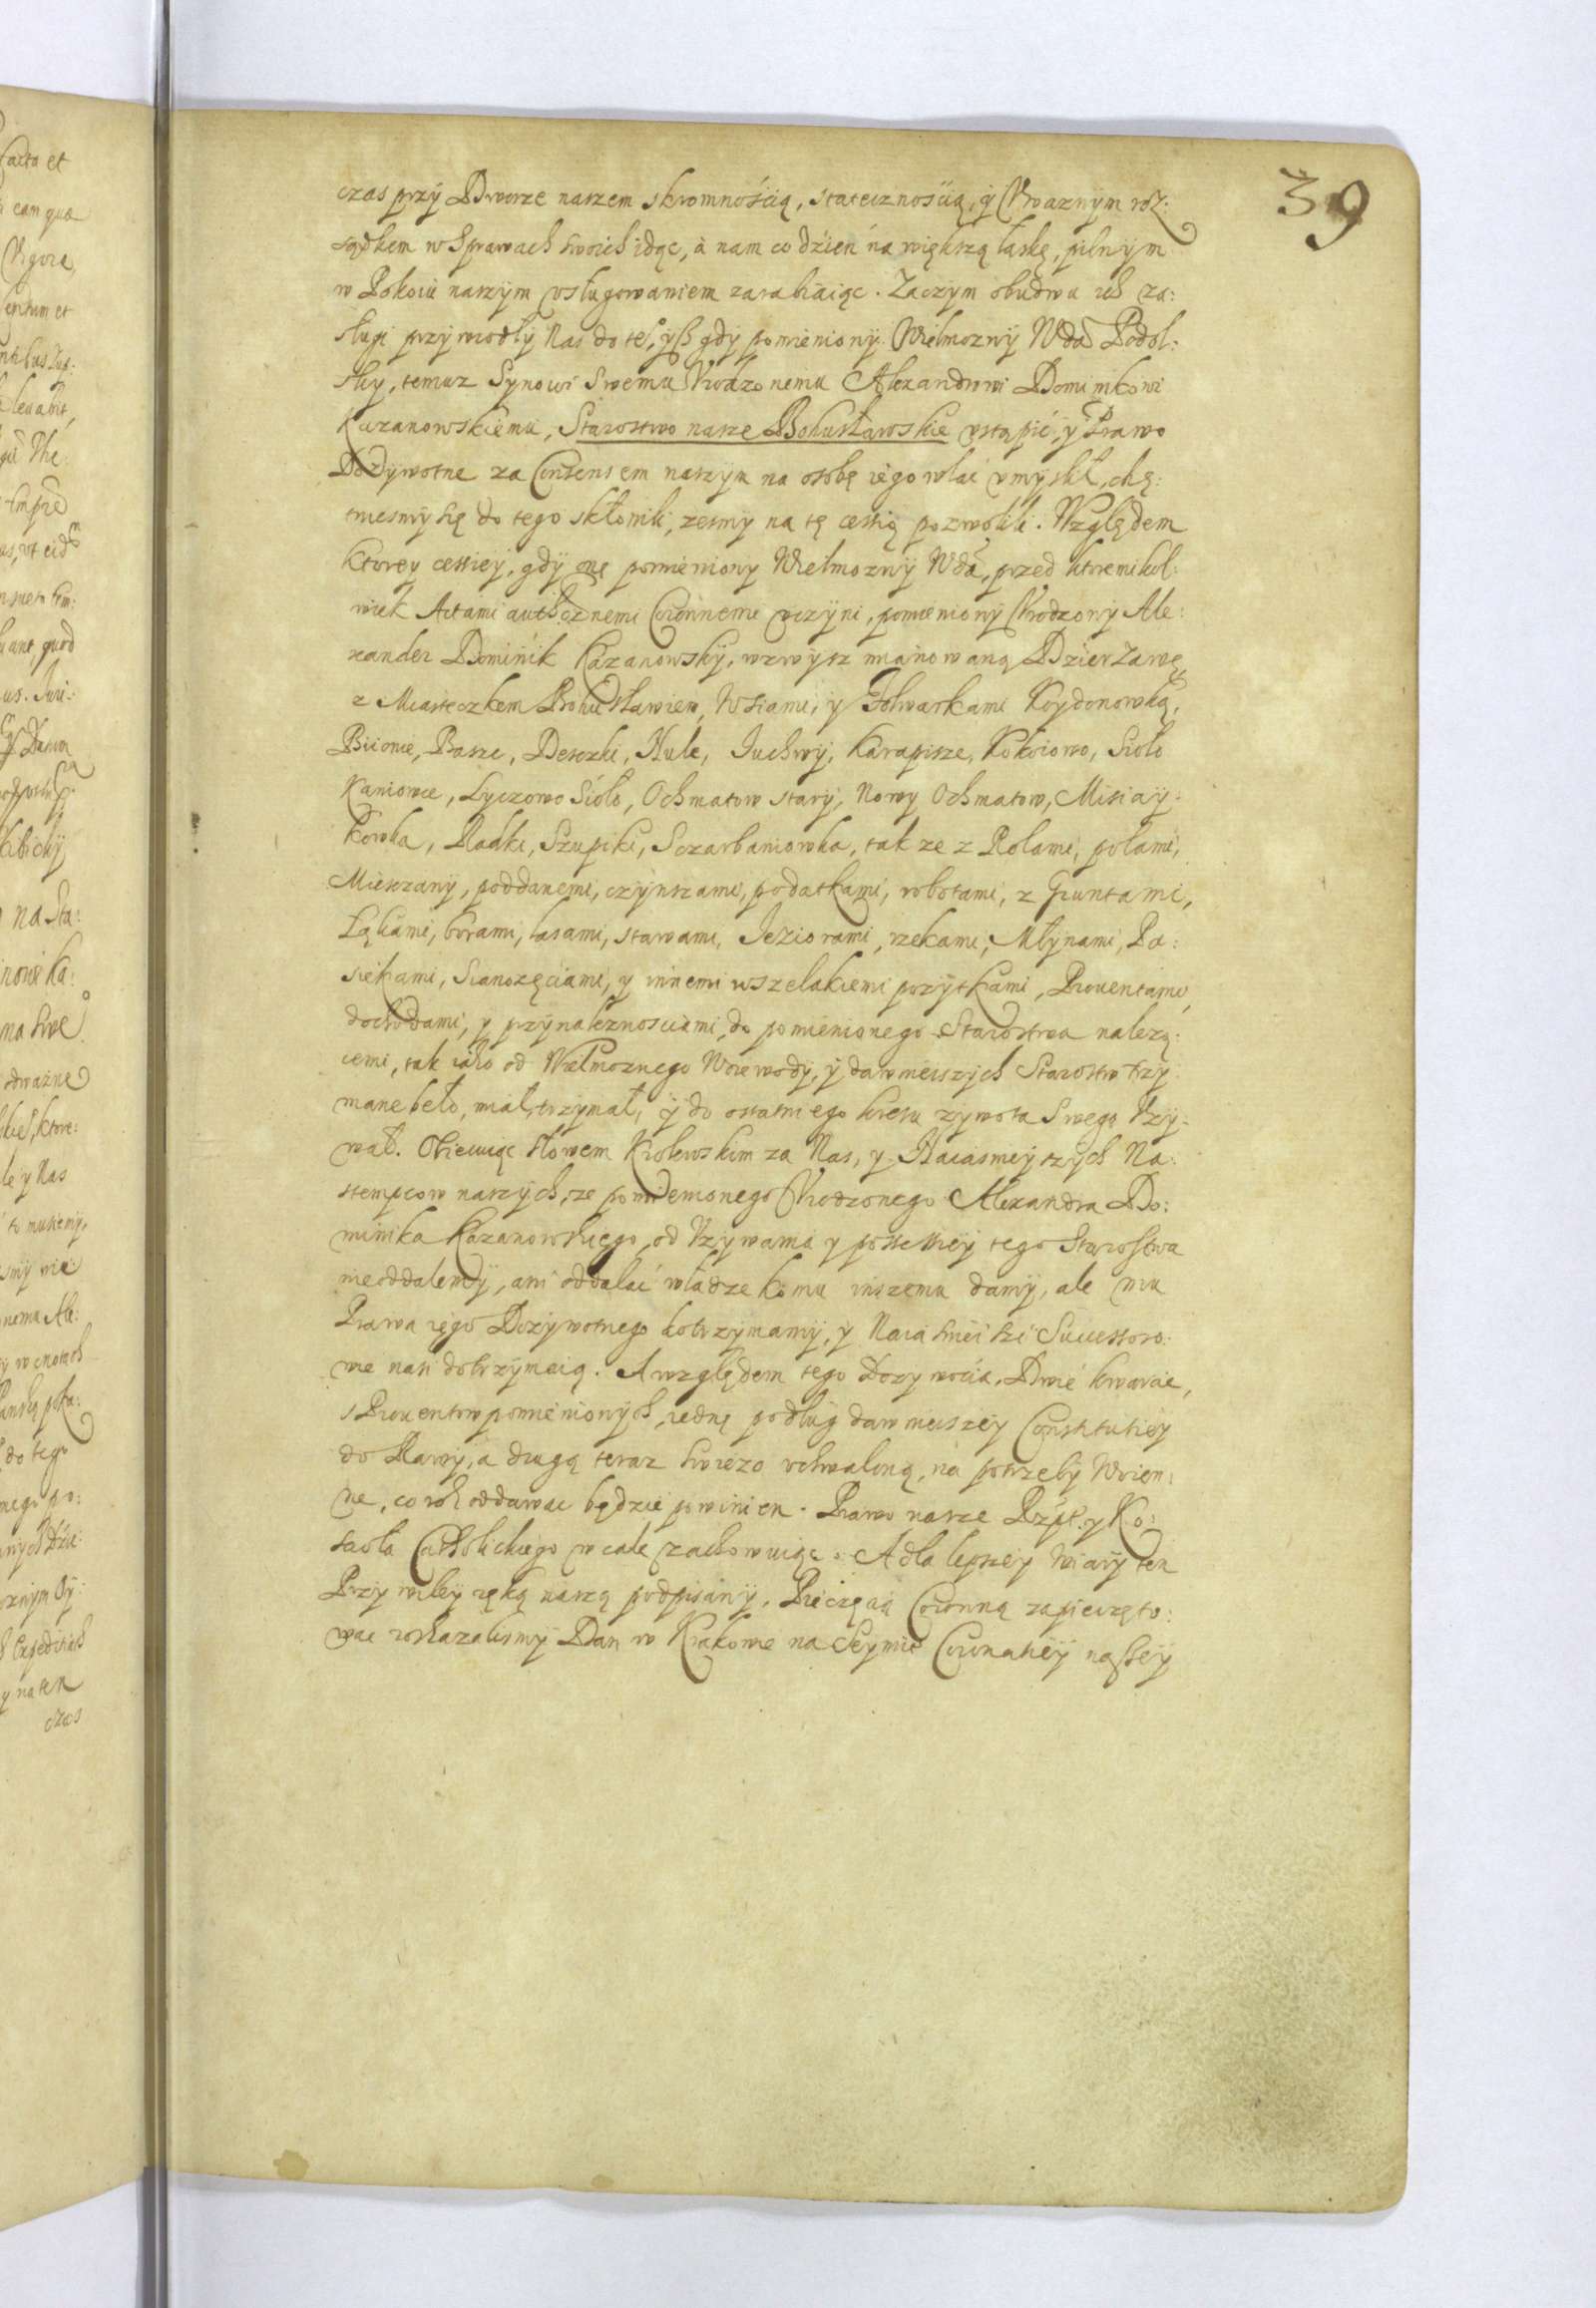 39
czas przÿ Dworze naszem skromnością, statecznością, ÿ Vwaznÿm roz:
sądkem w Sprawach swoich idąc, à nam co dzień na większą łaskę, pilnÿm
w Pokoiu naszÿm vsługowaniem zarabiaiąc. Zaczÿm obudwu ich za:
sługi przÿwiodłÿ Nas do te°, ÿß gdÿ pomienionÿ Wielmoznÿ Wda Podol:
sky, temuz Synowi Swemu Vrodzonemu Alexandrowi Dominikowi
Kazanowskiemu, Starostwo nasze Bohusławskie vstąpić, ÿ Prawo
Dozÿwotne za Consensem naszÿm na osobę iego wlać vmÿslił, chę:
tniesmÿ się do tego skłonili, zesmÿ na tę cessią pozwolili. Względem
ktorey cessiey, gdÿ onę pomieniony Wielmoznÿ Wda, przed ktoremikol:
wiek Actami auth.cznemi Coronnemi vczÿni, pomienionÿ Vrodzonÿ Ale:
xander Dominik Kazanowskÿ, wzwÿsz mianowaną Dzierzawę,
z Miasteczkem Bohusławiem, Wsiami, ÿ Folwarkami Koydonowką,
Biionie, Basze, Deszki, Hule, Iuchnÿ, Karapisze, Kokoiowo, Sioło
Kaniowce, Lyczowo Sioło, Ochmatow starÿ, Nowy Ochmatow, Misiaÿ:
kowka, Radki, Szupiki, Sczarbaniowka, tak ze z Rolami, polami,
Mieszczanÿ, poddanemi, czÿnszami, podatkami, robotami, z Gruntami,
Łąkami, borami, lasami, stawami, Ieziorami, rzekami, Młÿnami, Pa:
siekami, Sianozęciami, y innemi wszelakiemi pozÿtkami, Prouentami,
dochodami, y przÿnaleznosciami, do pomienionego Starostwa nalezą:
cemi, tak iako od Wielmoznego Woiewodÿ, ÿ dawnieiszych Starostw trzÿ
mane beło, miał, trzÿmał, ÿ do ostatniego kresu zywota Swego Vzÿ:
wał. Obiecuiąc słowem Krolewskim za Nas, y Naiasnieÿszÿch Na:
stempcow naszÿch, ze pomienionego Vrodzonego Alexandra Do:
minika Kazanowskiego, od Vzÿwania y possessieÿ tego Starostwa
nieoddalemÿ, ani oddalać władze komu inszemu damÿ, ale mu
Prawa iego Dozÿwotnego dotrzÿmamÿ, ÿ Naiasnieisi Successoro:
wie nasi dotrzÿmaią. A względem tego Dozywocia, Dwie kwarcie,
s Prouentow pomienionÿch, iednę podług dawnieiszeÿ Constitutieÿ
do Rawÿ, a drugą teraz swiezo vchwaloną, na potrzebÿ Woien:
ne, co rok oddawac będzie powinien. Prawo nasze Rzpl. y Ko:
scioła Catholickiego w cale zachowuiąc. A dla lepszeÿ Wiarÿ ten
Przywileÿ ręką naszą podpisanÿ, Pieczęcią Coronną zapieczęto:
wac roskazalismÿ Dan w Krakowie na Seÿmie Coronatieÿ nasseÿ